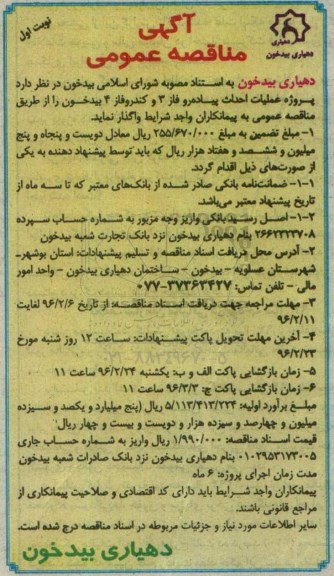 آگهی
مناقصه عمومی
نوبت اول
دهیاری
دهیاری بیدخون
دهیاری بیدخون به استناد مصوبه شورای اسلامی بیدخون در نظر دارد
پروژه عملیات احداث پیاده‌رو فاز ۳ و کندروفاز ۴ بیدخون را از طریق
مناقصه عمومی به پیمانکاران واجد شرایط واگذار نماید.
۱- مبلغ تضمین به مبلغ ۲۵۵/۶۷۰/۰۰۰ ریال معادل دویست و پنجاه و پنج
میلیون و ششصد و هفتاد هزار ریال که باید توسط پیشنهاد دهنده به یکی
از صورت‌های ذیل اقدام گردد.
۱-۱- ضمانت‌نامه بانکی صادر شده از بانک‌های معتبر که تا سه ماه از
تاریخ پیشنهاد معتبر می‌باشد.
۱-۲- اصل رسید بانکی واریز وجه مزبور به شماره حساب سپرده
۲۶۶۲۳۲۳۷۰۸ بنام دهیاری بیدخون نزد بانک تجارت شعبه بیدخون
۲- آدرس محل دریافت اسناد مناقصه و تسلیم پیشنهادات: استان بوشهر-
شهرستان عسلویه - بیدخون - ساختمان دهیاری بیدخون - واحد امور
مالی - تلفن تماس: ۳۷۳۶۳۴۲۷-۰۷۷
۳- مهلت مراجعه جهت دریافت اسناد مناقصه: از تاریخ ۹۶/۲/۶ لغایت
۹۶/۲/۱۱
۴- آخرین مهلت تحویل پاکت پیشنهادات: ساعت ۱۲ روز شنبه مورخ
۹۶/۲/۲۳
۵- زمان بازگشایی پاکت الف و ب: یکشنبه ۹۶/۲/۲۴ ساعت ۱۱
۶- زمان بازگشایی پاکت ج: ۹۶/۳/۳ ساعت ۱۱
مبلغ برآورد اولیه: ۵/۱۱۳/۴۱۳/۲۲۴ ریال (پنج میلیارد و یکصد و سیزده
میلیون و چهارصد و سیزده هزار و دویست و بیست و چهار ریال)
قیمت اسناد مناقصه: ۱/۹۹۰/۰۰۰ ریال واریز به شماره حساب جاری
۰۱۰۲۹۵۳۱۷۳۰۰۵ بنام دهیاری بیدخون نزد بانک صادرات شعبه بیدخون
مدت زمان اجرای پروژه: ۶ ماه
پیمانکاران واجد شرایط باید دارای کد اقتصادی و صلاحیت پیمانکاری از
مراجع قانونی باشند.
سایر اطلاعات مورد نیاز و جزئیات مربوطه در اسناد مناقصه درج شده است.
دهیاری بیدخون